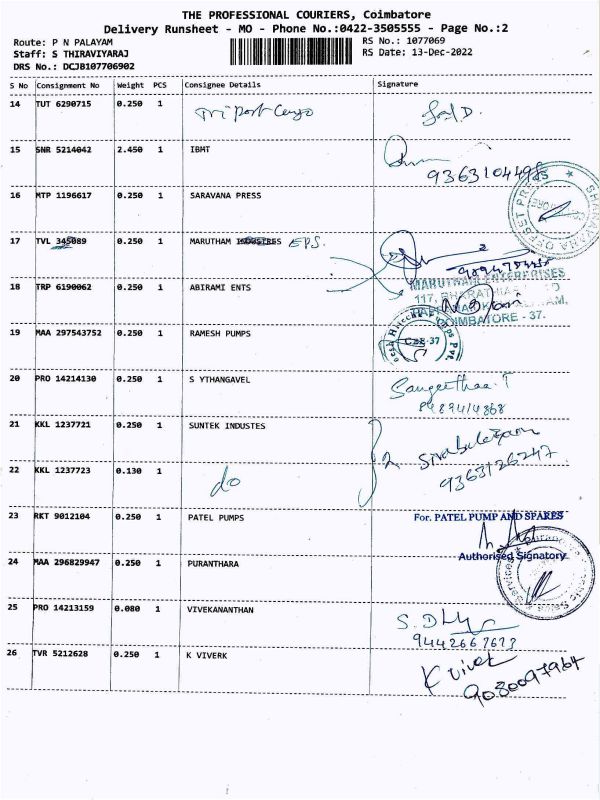 THE PROFESSIONAL COURIERS, Coimbatore
Delivery Runsheet - MO - Phone No.:0422-3505555 - Page No.:2
Route: P N PALAYAM RS No.: 1077069
Staff: S THIRAVIYARAJ RS Date: 13-Dec-2022
DRS No.: DCJB107706902
S No Consignment No Weight PCS Consignee Details Signature
14 TUT 6290715 0.250 1 Tri Port Cargo
15 SNR 5214042 2.450 1 IBMT
9363104498
16 MTP 1196617 0.250 1 SARAVANA PRESS
17 TVL 345089 0.250 1 MARUTHAM INDUSTRES EPS.
18 TRP 6190062 0.250 1 ABIRAMI ENTS
MARUTHAM ENTERPRISES
COIMBATORE - 37.
19 MAA 297543752 0.250 1 RAMESH PUMPS
CBE-37
20 PRO 14214130 0.250 1 S YTHANGAVEL Sangeethaa.T
21 KKL 1237721 0.250 1 SUNTEK INDUSTES
22 KKL 1237723 0.130 1 do 2
9363126247
23 RKT 9012104 0.250 1 PATEL PUMPS For. PATEL PUMP AND SPARES
Authorised Signatory
24 MAA 296829947 0.250 1 PURANTHARA
25 PRO 14213159 0.080 1 VIVEKANANTHAN
9442667673
26 TVR 5212628 0.250 1 K VIVERK K Vivek
9080097964